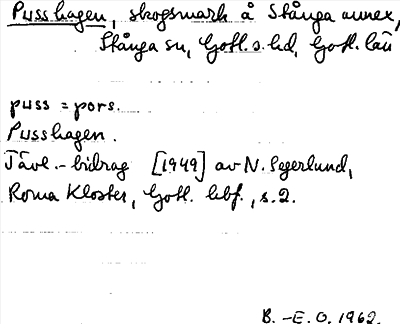 Pusshagen, skogsmark å Stånga annex,
Stånga sn, Gotl. s. hd, Gotl. län
puss = pors.
Pusshagen.
Tävl.-bidrag [1949] av N. Segerlund,
Roma Kloster, Gotl. hbf., s. 2.
B.-E. O. 1962.